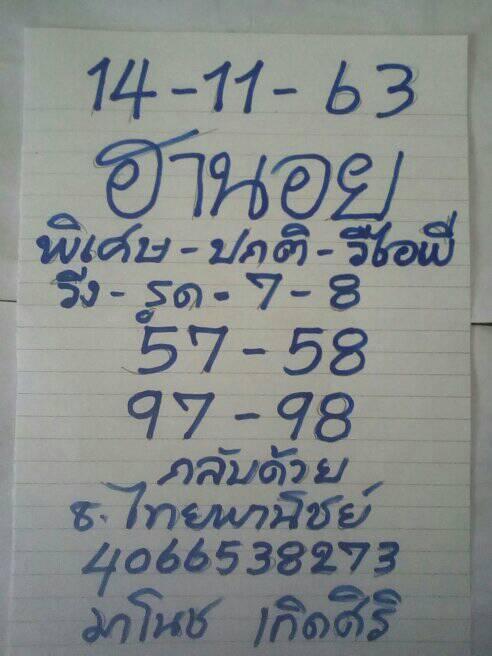 14-11-63
ฮานอย
พิเศษ-ปกติ-วีไอพี
วิ่ง-รูด-7-8
57-58
97-98
กลับด้วย
ธ.ไทยพานิชย์
4066538273
มาโนช เกิดศิริ